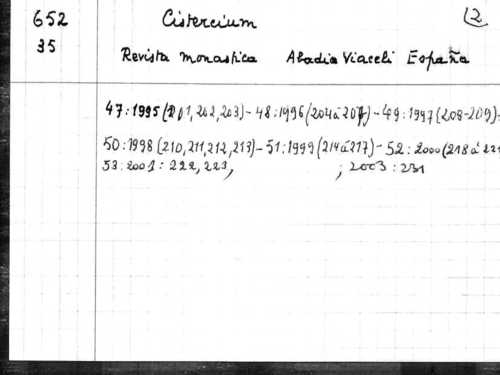 652 Cistercium (2
35
Revista monastica Abadia Viaceli España
47:1995 (201, 202, 203) - 48:1996 (204 à 207) - 49:1997 (208-209) -
50:1998 (210, 211, 212, 213) - 51:1999 (214 à 217) - 52:2000 (218 à 221
53:2001: 222, 223, ; 2003: 231